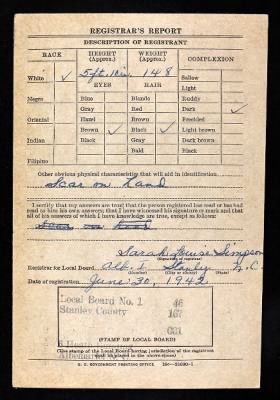 REGISTRAR'S REPORT
DESCRIPTION OF REGISTRANT
RACE HEIGHT (Approx.) WEIGHT (Approx.) COMPLEXION
White ✓ 5 ft. 1 in. 148 Sallow
EYES HAIR Light
Negro Blue Blonde Ruddy
Gray Red Dark ✓
Oriental Hazel Brown Freckled
Brown ✓ Black ✓ Light brown
Indian Black Gray Dark brown
Bald Black
Filipino
Other obvious physical characteristics that will aid in identification
Scar on hand
I certify that my answers are true; that the person registered has read or has had
read to him his own answers; that I have witnessed his signature or mark and that
all of his answers of which I have knowledge are true, except as follows:
Sarah Louise Simpson
(Signature of registrar)
Registrar for Local Board 1 Stanly N.C.
(Number) (City or county) (State)
Date of registration June 30, 1942
Local Board No. 1 46
Stanly County 167
001
Albemarle
(STAMP OF LOCAL BOARD)
(The stamp of the Local Board having jurisdiction of the registrant
shall be placed in the above space)
U. S. GOVERNMENT PRINTING OFFICE